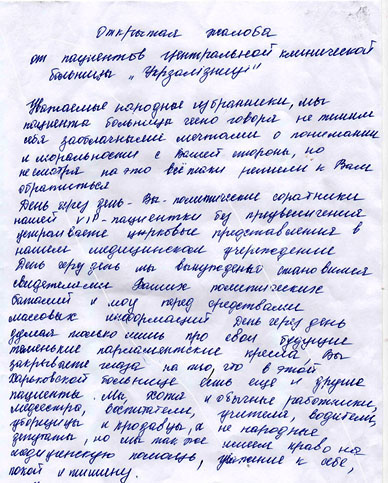 Открытая жалоба
от пациентов Центральной клинической
больницы „Укрзалізниці"
Уважаемые народные избранники, мы
пациенты больницы чесно говоря не тешим
себя заоблачными мечтами о понимании
и моральности с Вашей стороны, но
несмотря на это всё таки решили к Вам
обратиться
День через день - Вы - политические соратники
нашей VIP-пациентки без преувеличения
устраиваете цирковые представления в
нашем медицинском учереждение
День через день мы вынужденно становимся
свидетелями Ваших политических
баталий и шоу перед средствами
массовых информаций. День через день
думая только лишь про свои будущие
тёпленькие парламентские кресла Вы
закрываете глаза на то, что в этой
Харьковской больнице есть ещё и другие
пациенты. Мы, хотя и обычные работники,
медсестры, воспитатели, учителя, водители,
уборщицы и продавцы, а не народные
депутаты, но мы так же имеем право на
медицинскую помощь, уважение к себе,
покой и тишину.